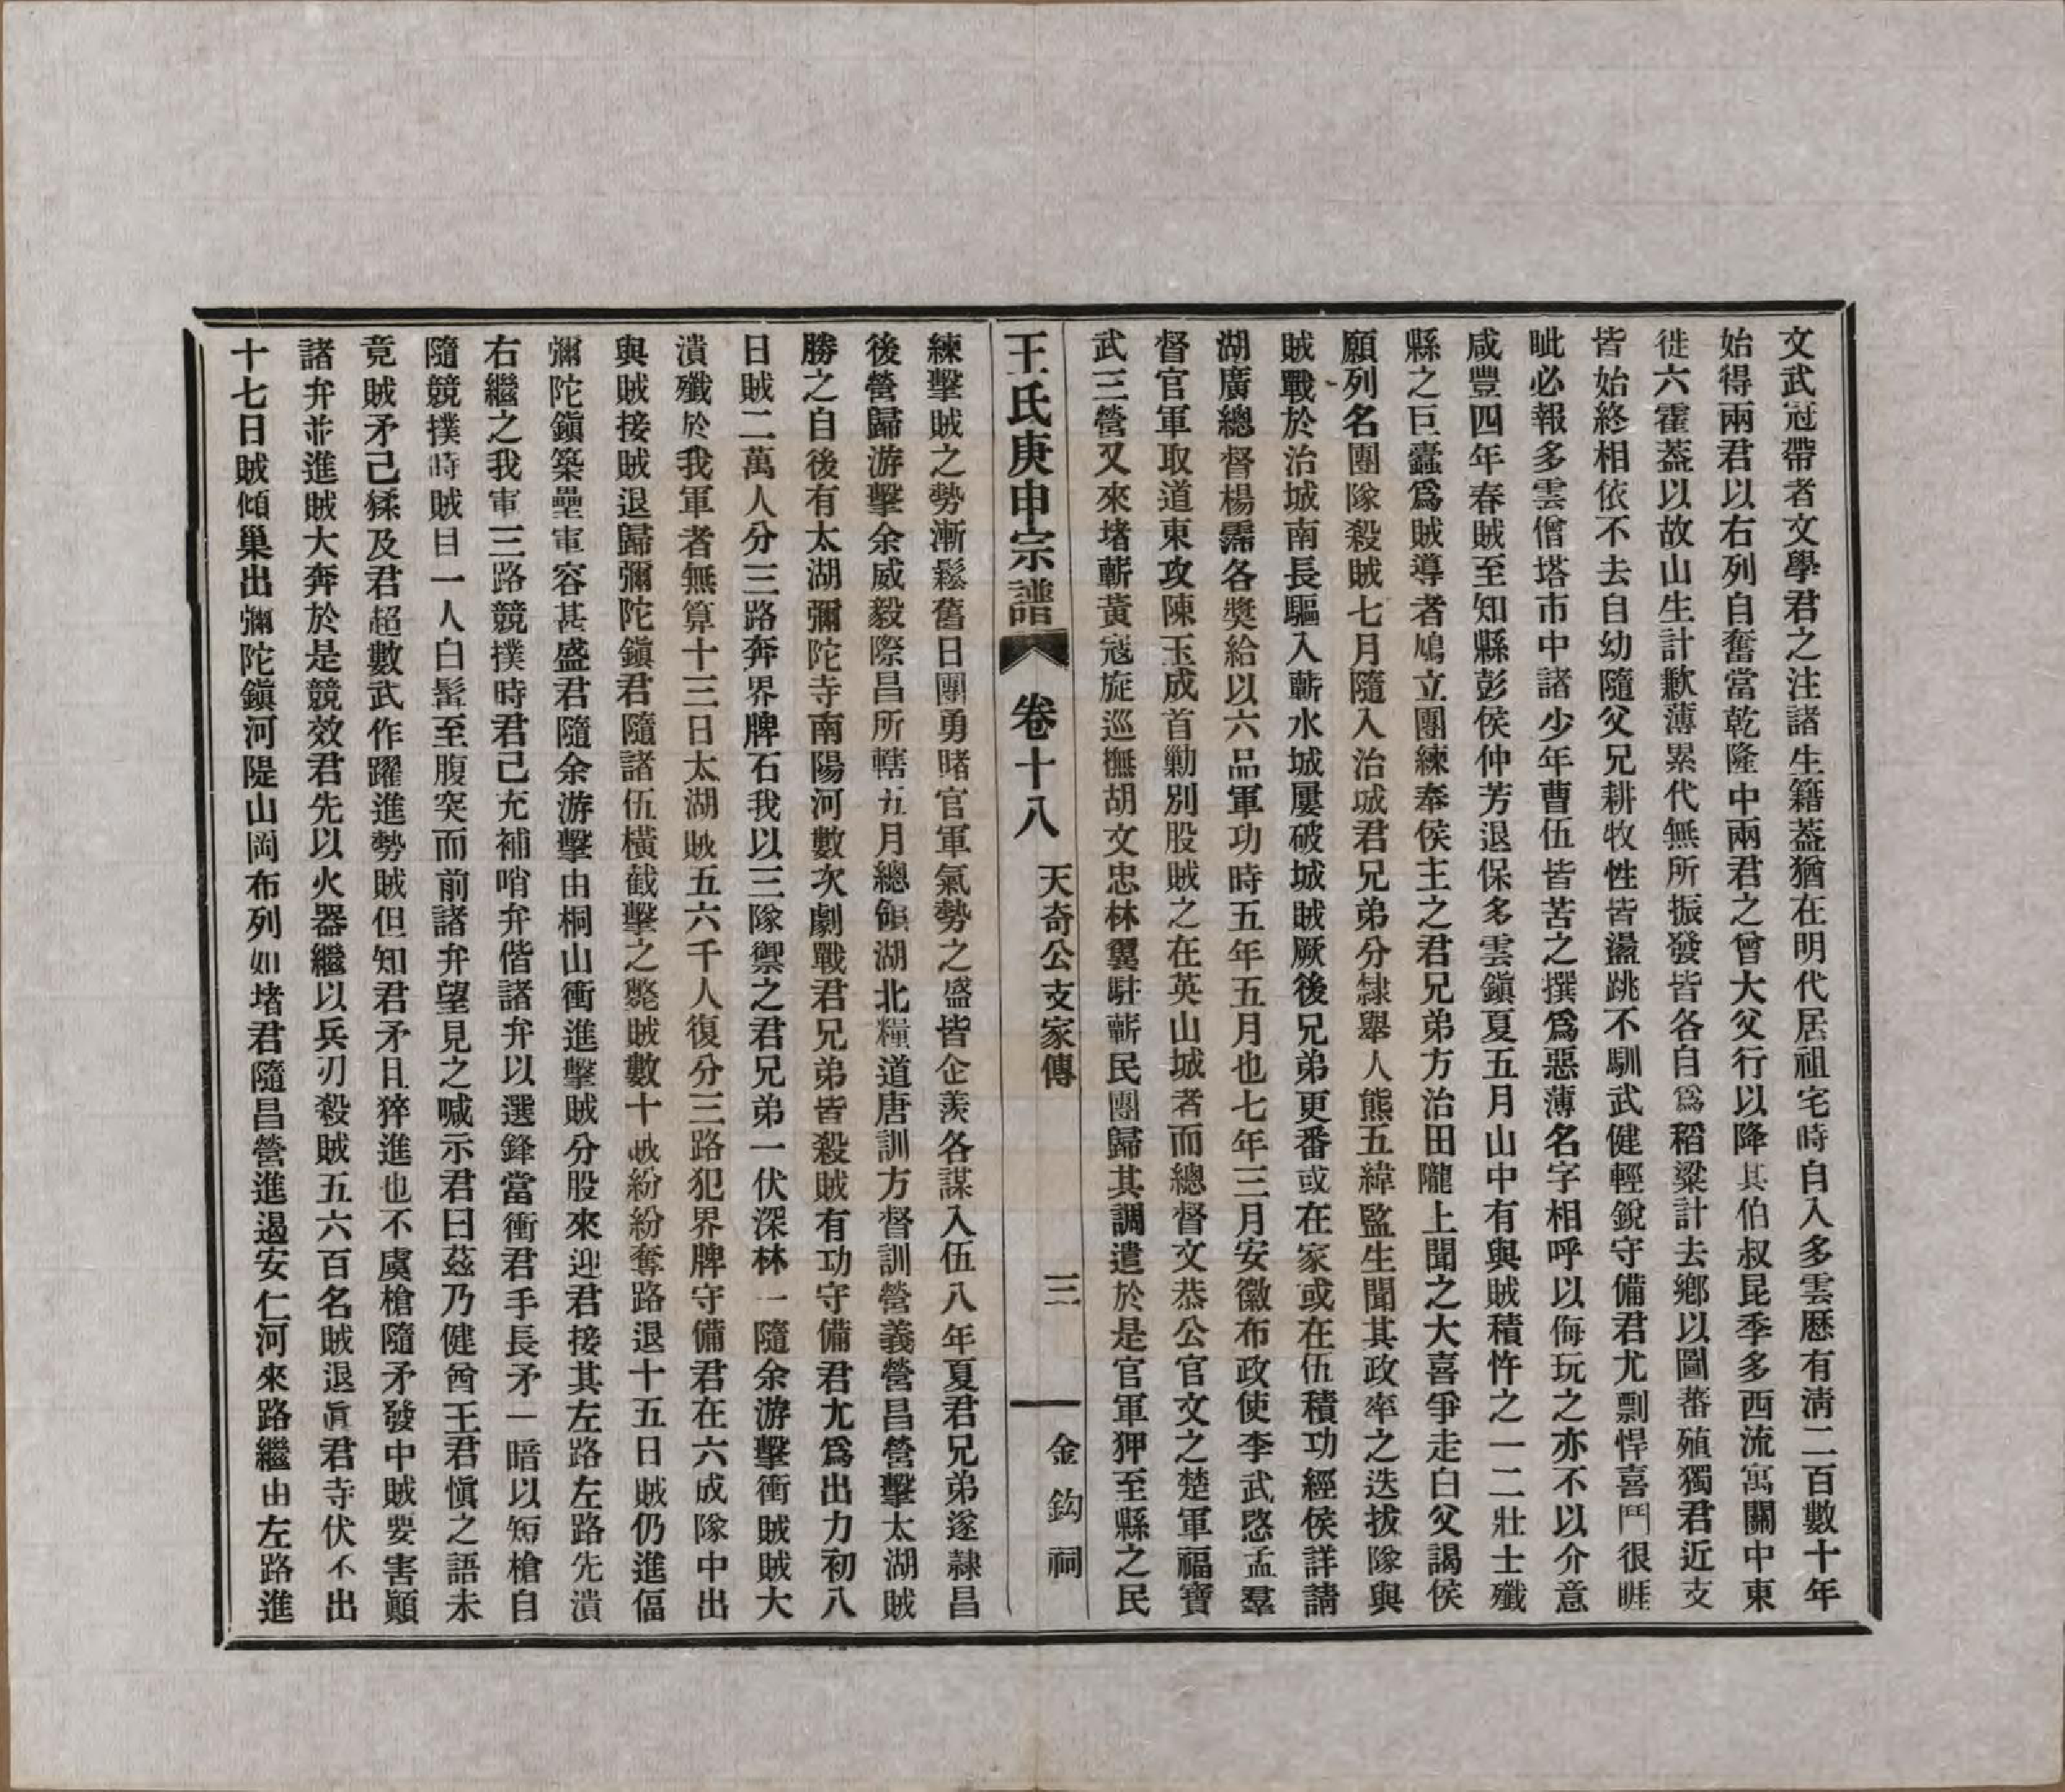 文武冠帶者文學君之注諸生籍葢猶在明代居祖宅時自入多雲歷有淸二百數十年
始得兩君以右列自奮當乾隆中兩君之曾大父行以降其伯叔昆季多西流寓關中東
徙六霍葢以故山生計歉薄累代無所振發皆各自爲稻粱計去鄕以圖蕃殖獨君近支
皆始終相依不去自幼隨父兄耕牧性皆盪跳不馴武健輕銳守備君尤剽悍喜鬥很睚
眦必報多雲僧塔市中諸少年曹伍皆苦之撰爲惡薄名字相呼以侮玩之亦不以介意
咸豐四年春賊至知縣彭侯仲芳退保多雲鎭夏五月山中有與賊積忤之一二壯士殲
縣之巨蠹爲賊導者鳩立團練奉侯主之君兄弟方治田隴上聞之大喜爭走白父謁侯
願列名團隊殺賊七月隨入治城君兄弟分隸舉人熊五緯監生聞其政率之迭拔隊與
賊戰於治城南長驅入蘄水城屢破城賊厥後兄弟更番或在家或在伍積功經侯詳請
湖廣總督楊霈各獎給以六品軍功時五年五月也七年三月安徽布政使李武愍孟羣
督官軍取道東攻陳玉成首勦別股賊之在英山城者而總督文恭公官文之楚軍福寶
武三營又來堵蘄黃寇旋巡撫胡文忠林翼駐蘄民團歸其調遣於是官軍狎至縣之民
王氏庚申宗譜 卷十八 天奇公支家傳 三 金鈎祠
練擊賊之勢漸鬆舊日團勇睹官軍氣勢之盛皆企羨各謀入伍八年夏君兄弟遂隸昌
後營歸游擊余威毅際昌所轄五月總領湖北糧道唐訓方督訓營義營昌營擊太湖賊
勝之自後有太湖彌陀寺南陽河數次劇戰君兄弟皆殺賊有功守備君尤爲出力初八
日賊二萬人分三路奔界牌石我以三隊禦之君兄弟一伏深林一隨余游擊衝賊賊大
潰殲於我軍者無算十三日太湖賊五六千人復分三路犯界牌守備君在六成隊中出
與賊接賊退歸彌陀鎭君隨諸伍橫截擊之斃賊數十賊紛紛奪路退十五日賊仍進偪
彌陀鎭築壘軍容甚盛君隨余游擊由桐山衝進擊賊分股來迎君接其左路左路先潰
右繼之我軍三路競撲時君已充補哨弁偕諸弁以選鋒當衝君手長矛一暗以短槍自
隨競撲時賊目一人白髯至腹突而前諸弁望見之喊示君曰茲乃健酋王君愼之語未
竟賊矛已猱及君超數武作躍進勢賊但知君矛且猝進也不虞槍隨矛發中賊要害顚
諸弁並進賊大奔於是競效君先以火器繼以兵刃殺賊五六百名賊退眞君寺伏不出
十七日賊傾巢出彌陀鎭河隄山岡布列如堵君隨昌營進遏安仁河來路繼由左路進